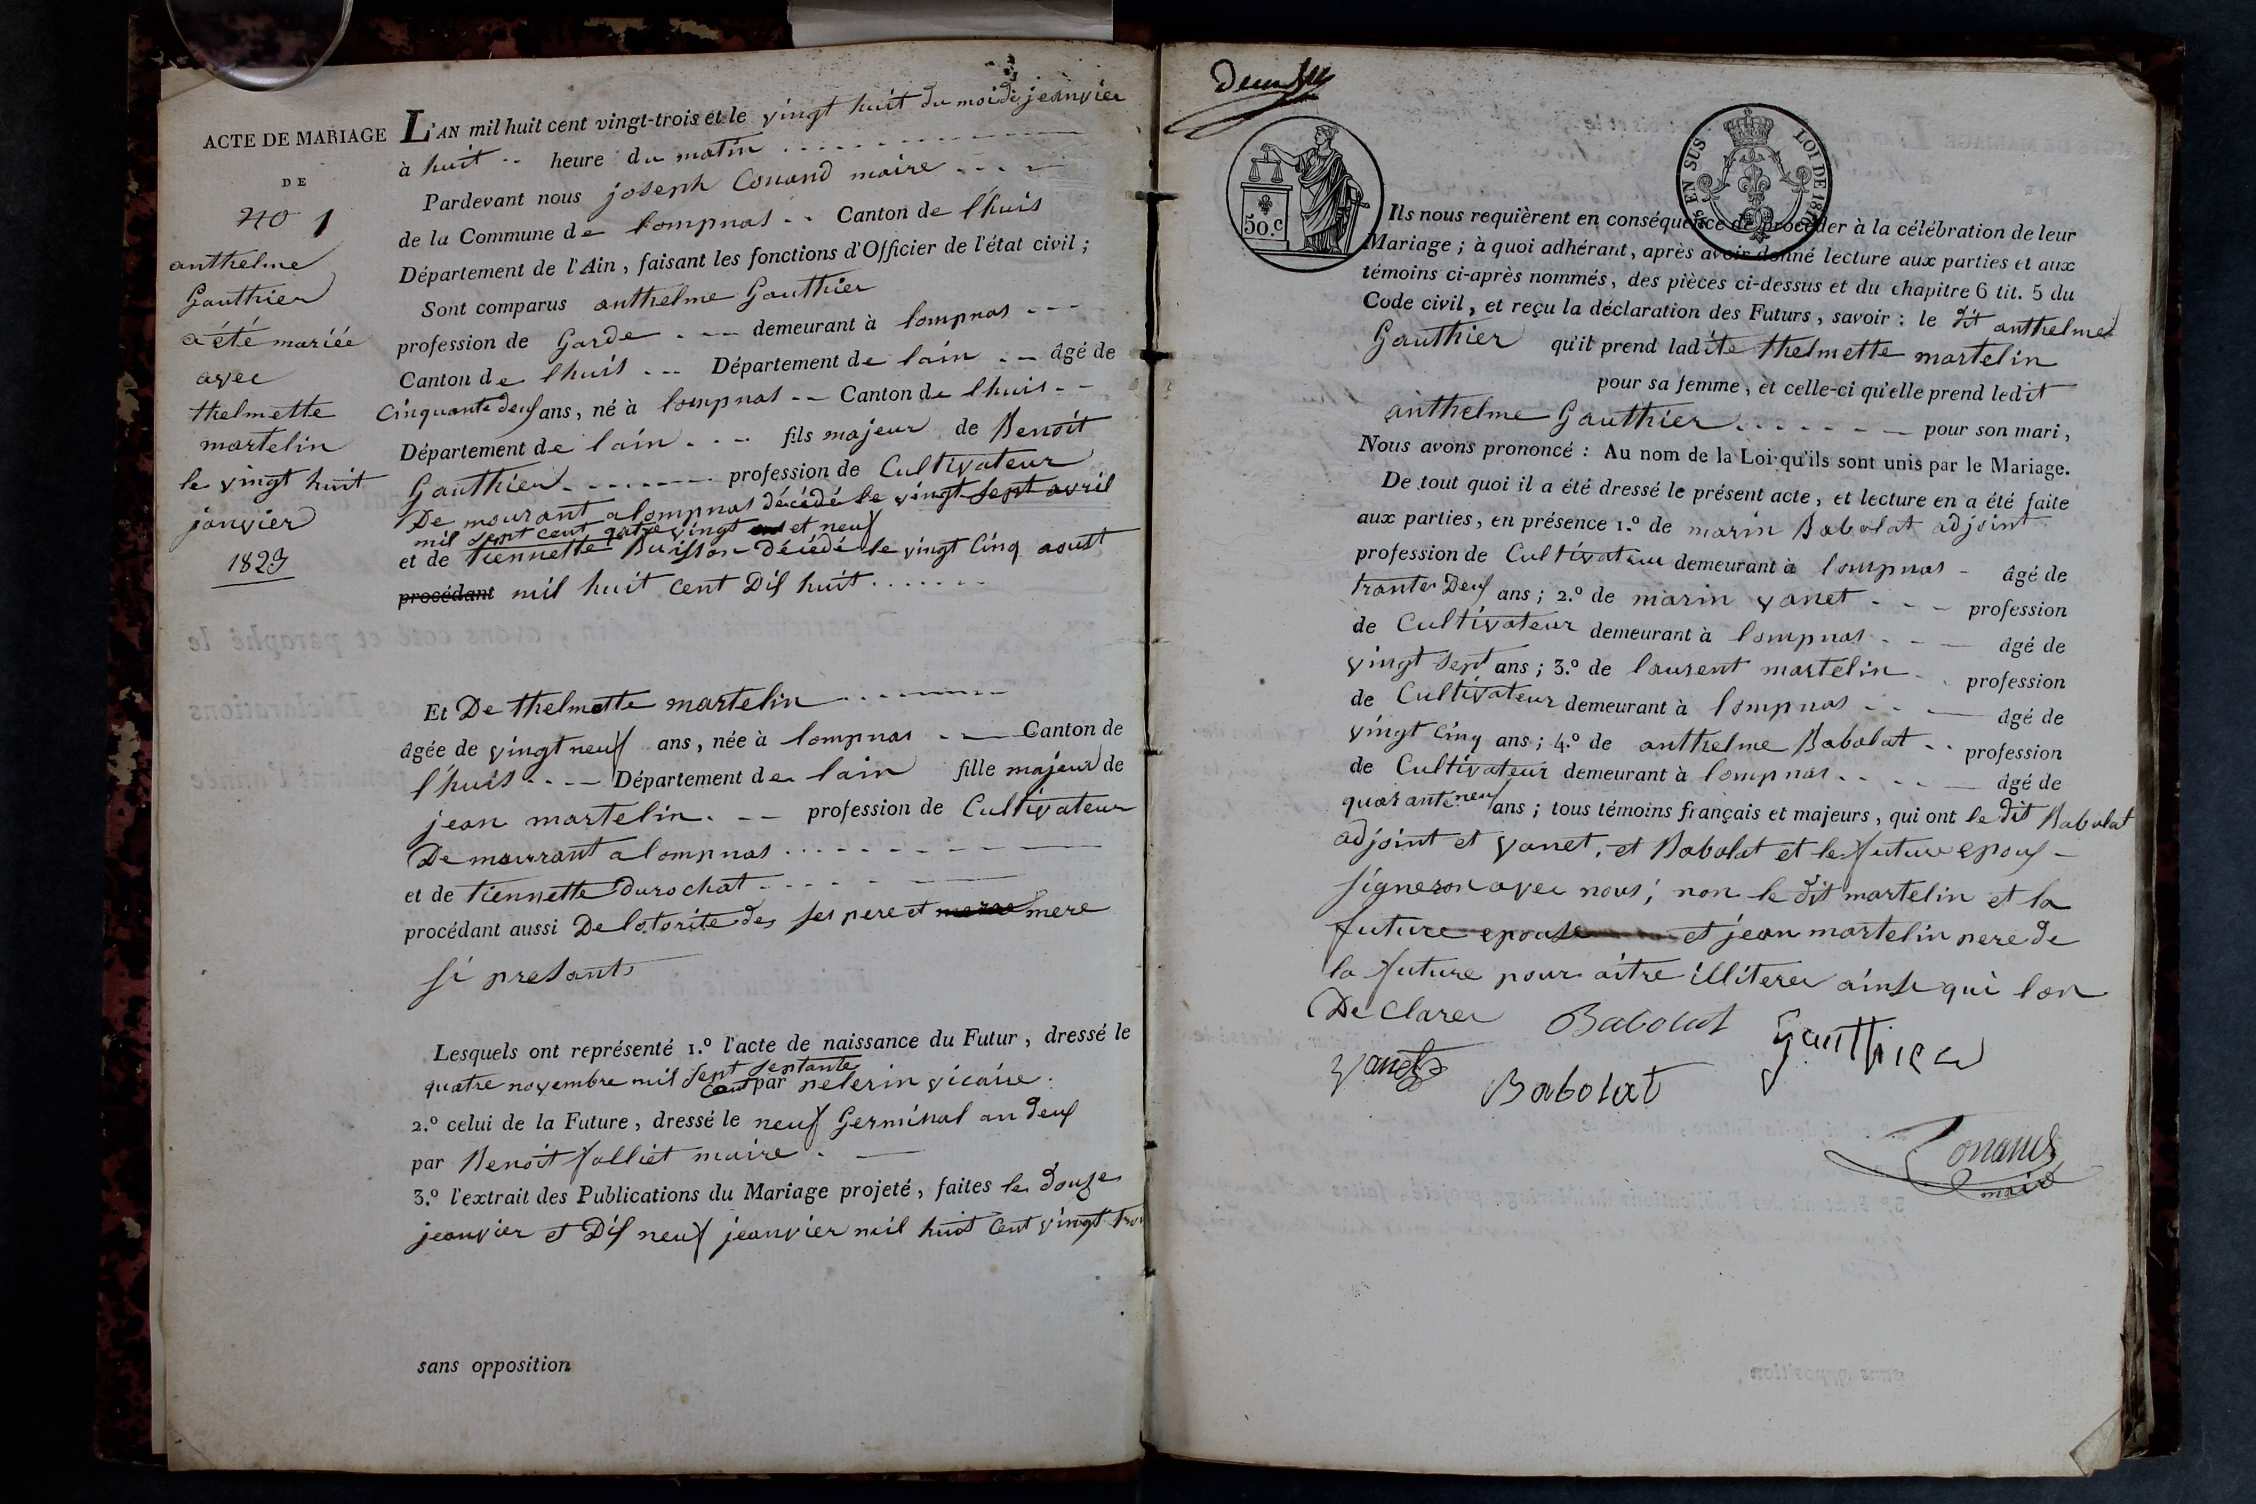 ACTE DE MARIAGE
DE
no 1
anthelme
Gauthier
a été mariée
avec
thelmette
martelin
le vingt huit
janvier
1823
L'AN mil huit cent vingt-trois et le vingt huit du moi de jeanvier
à huit heure du matin
Pardevant nous joseph Conand maire
de la Commune de lompnas Canton de lhuis
Département de l'Ain, faisant les fonctions d'Officier de l'état civil ;
Sont comparus anthelme Gauthier
profession de Garde demeurant à lompnas
Canton de lhuis Département de lain âgé de
Cinquante deuf ans, né à lompnas Canton de lhuis
Département de lain fils majeur de Benoit
Gauthier profession de Cultivateur
De mourant a lompnas décédé le vingt sept avril
mil sept cent qatre vingt et neuf
et de tiennette Buisson Décédé le vingt Cinq aoust
procédant mil huit cent Dif huit
Et De thelmette martelin
âgée de vingt neuf ans, née à lompnas Canton de
lhuis Département de lain fille majeur de
jean martelin profession de Cultivateur
De mourant a lompnas
et de tiennette Durochat
procédant aussi De lotorite de ses pere et mere
si presant
Lesquels ont représenté 1.º l'acte de naissance du Futur, dressé le
quatre novembre mil sept cent septante par pelerin vicaire
2.º celui de la Future, dressé le neuf Germinal an deuf
par Benoit folliet maire
3.º l'extrait des Publications du Mariage projeté, faites le douze
jeanvier et Dif neuf jeanvier mil huit cent vingt troi
sans opposition
50.c
EN SUS
LOI DE 1816
Ils nous requièrent en conséquence de procéder à la célébration de leur
Mariage ; à quoi adhérant, après avoir donné lecture aux parties et aux
témoins ci-après nommés, des pièces ci-dessus et du chapitre 6 tit. 5 du
Code civil, et reçu la déclaration des Futurs, savoir : le dit anthelme
Gauthier qu'il prend ladite thelmette martelin
pour sa femme, et celle-ci qu'elle prend ledit
anthelme Gauthier pour son mari,
Nous avons prononcé : Au nom de la Loi qu'ils sont unis par le Mariage.
De tout quoi il a été dressé le présent acte, et lecture en a été faite
aux parties, en présence 1.º de marin Babolat adjoint
profession de Cultivateur demeurant à lompnas âgé de
trante Deuf ans ; 2.º de marin vanet profession
de Cultivateur demeurant à lompnas âgé de
vingt sept ans ; 3.º de laurent martelin profession
de Cultivateur demeurant à lompnas âgé de
vingt Cinq ans ; 4.º de anthelme Babolat profession
de Cultivateur demeurant à lompnas âgé de
quarante neuf ans ; tous témoins français et majeurs, qui ont le dit Babolat
adjoint et vanet, et Babolat et le future epouf
signeron avec nous; non le dit martelin et la
future epouse et jean martelin pere de
la future pour aitre illiterer ainsi qui lon
De Clarer Babolat Gauthier
vanet Babolat
Conand
maire